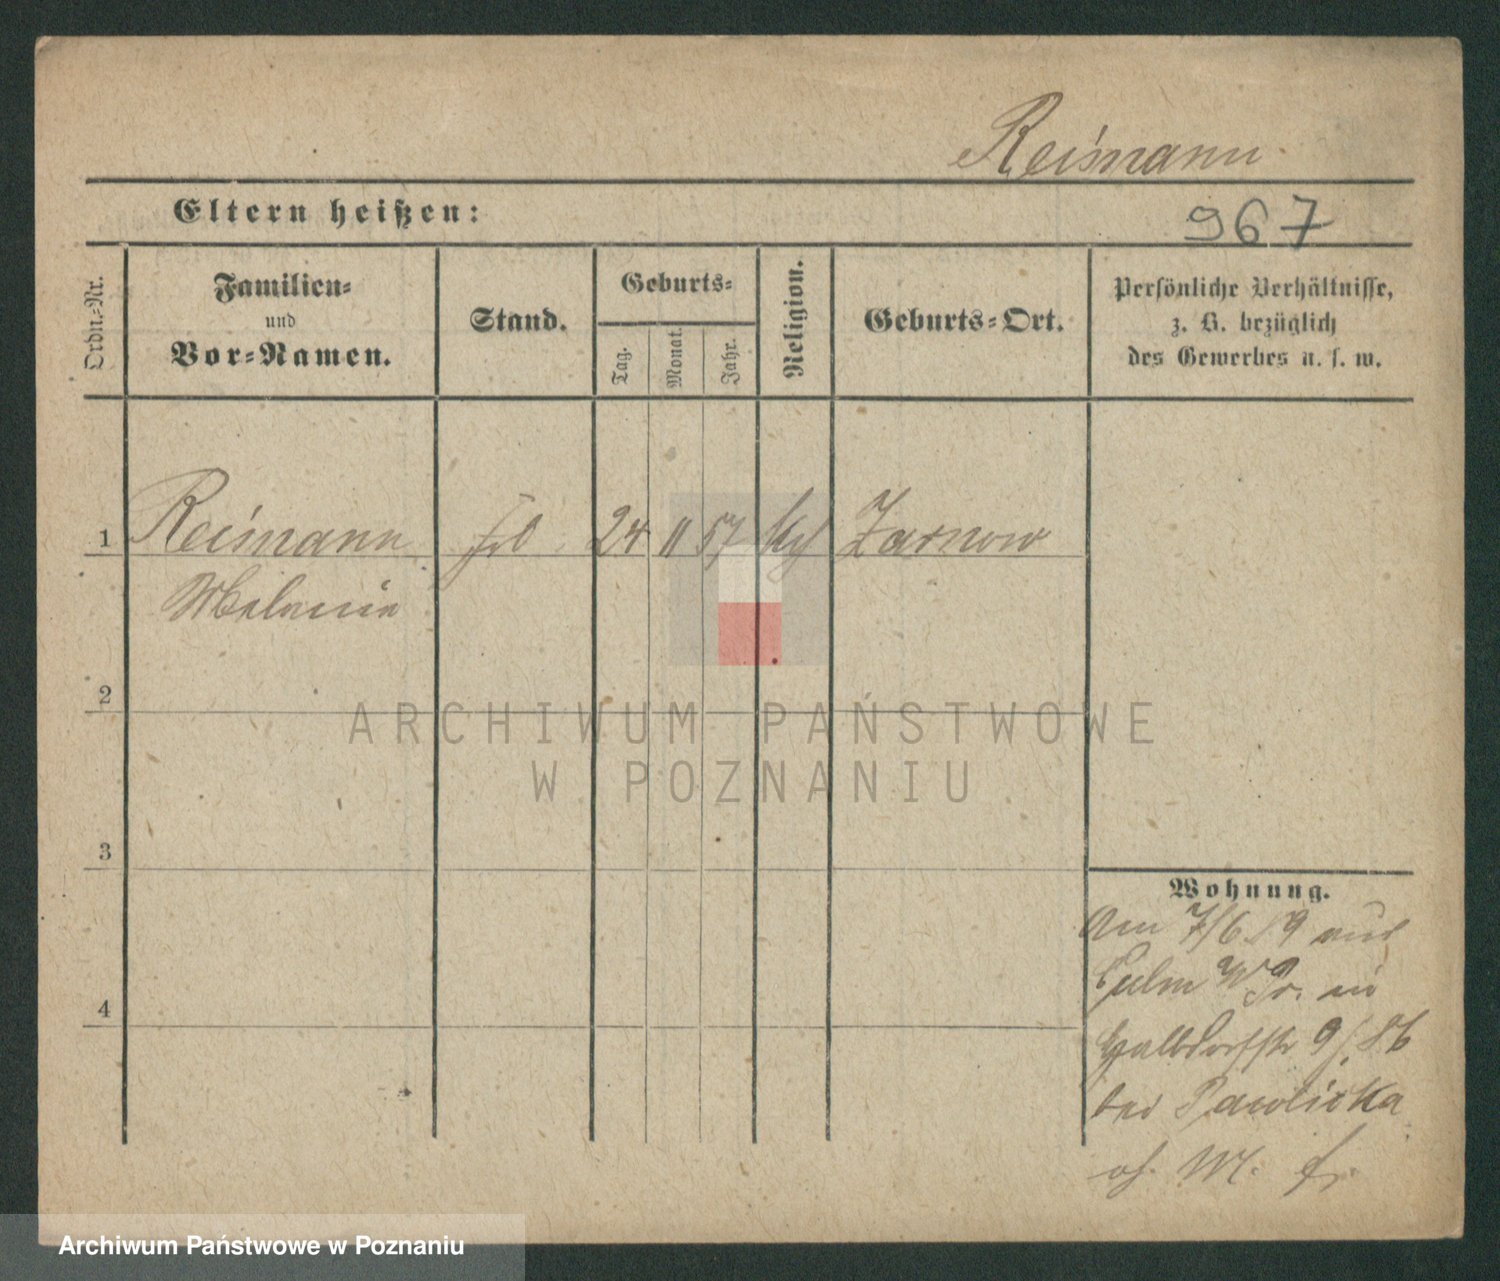 Reimann
Eltern heißen:
967
Ordn.-Nr.
Familien-
und
Vor-Namen.
Stand.
Geburts-
Tag.
Monat.
Jahr.
Religion.
Geburts-Ort.
Persönliche Verhältnisse,
z. B. bezüglich
des Gewerbes u. s. w.
1 Reimann frl 24 11 57 Zarnow
Melanie
2
ARCHIWUM PAŃSTWOWE
W POZNANIU
3
Wohnung.
Am 7/6 89 aus
Culm W Pr. in
Halbdorfstr 9/
bei Pawlicka
4
Archiwum Państwowe w Poznaniu